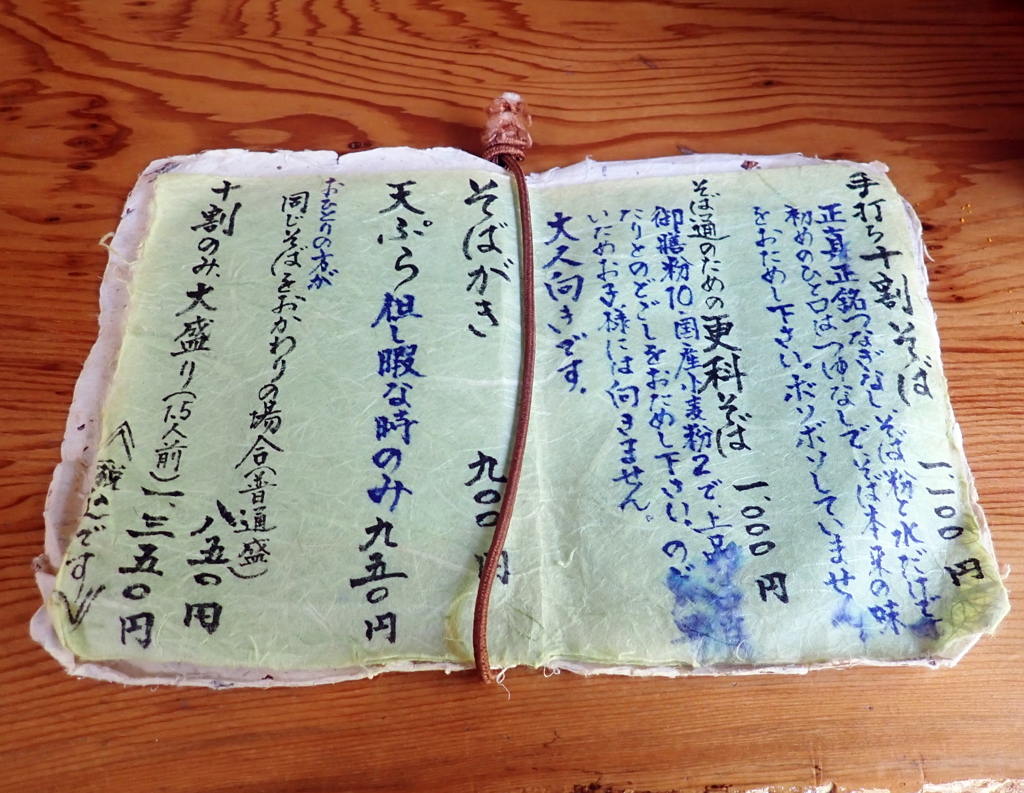 手打ち十割そば 一、一〇〇円
正真正銘つなぎなし、そば粉と水だけで
初めのひと口はつゆなしで、そば本来の味
をおためし下さい。ボソボソしていませ
そば通のための更科そば 一、〇〇〇円
御膳粉10国産小麦粉2で、上品
たりとのどごしをおためし下さい。ので
いためお子様には向きません。
大人向きです。
そばがき 九〇〇円
天ぷら 但し暇な時のみ 九五〇円
おひとりの方が
同じそばをおかわりの場合(普通盛) 八五〇円
十割のみ、大盛り(1.5人前) 一、三五〇円
です